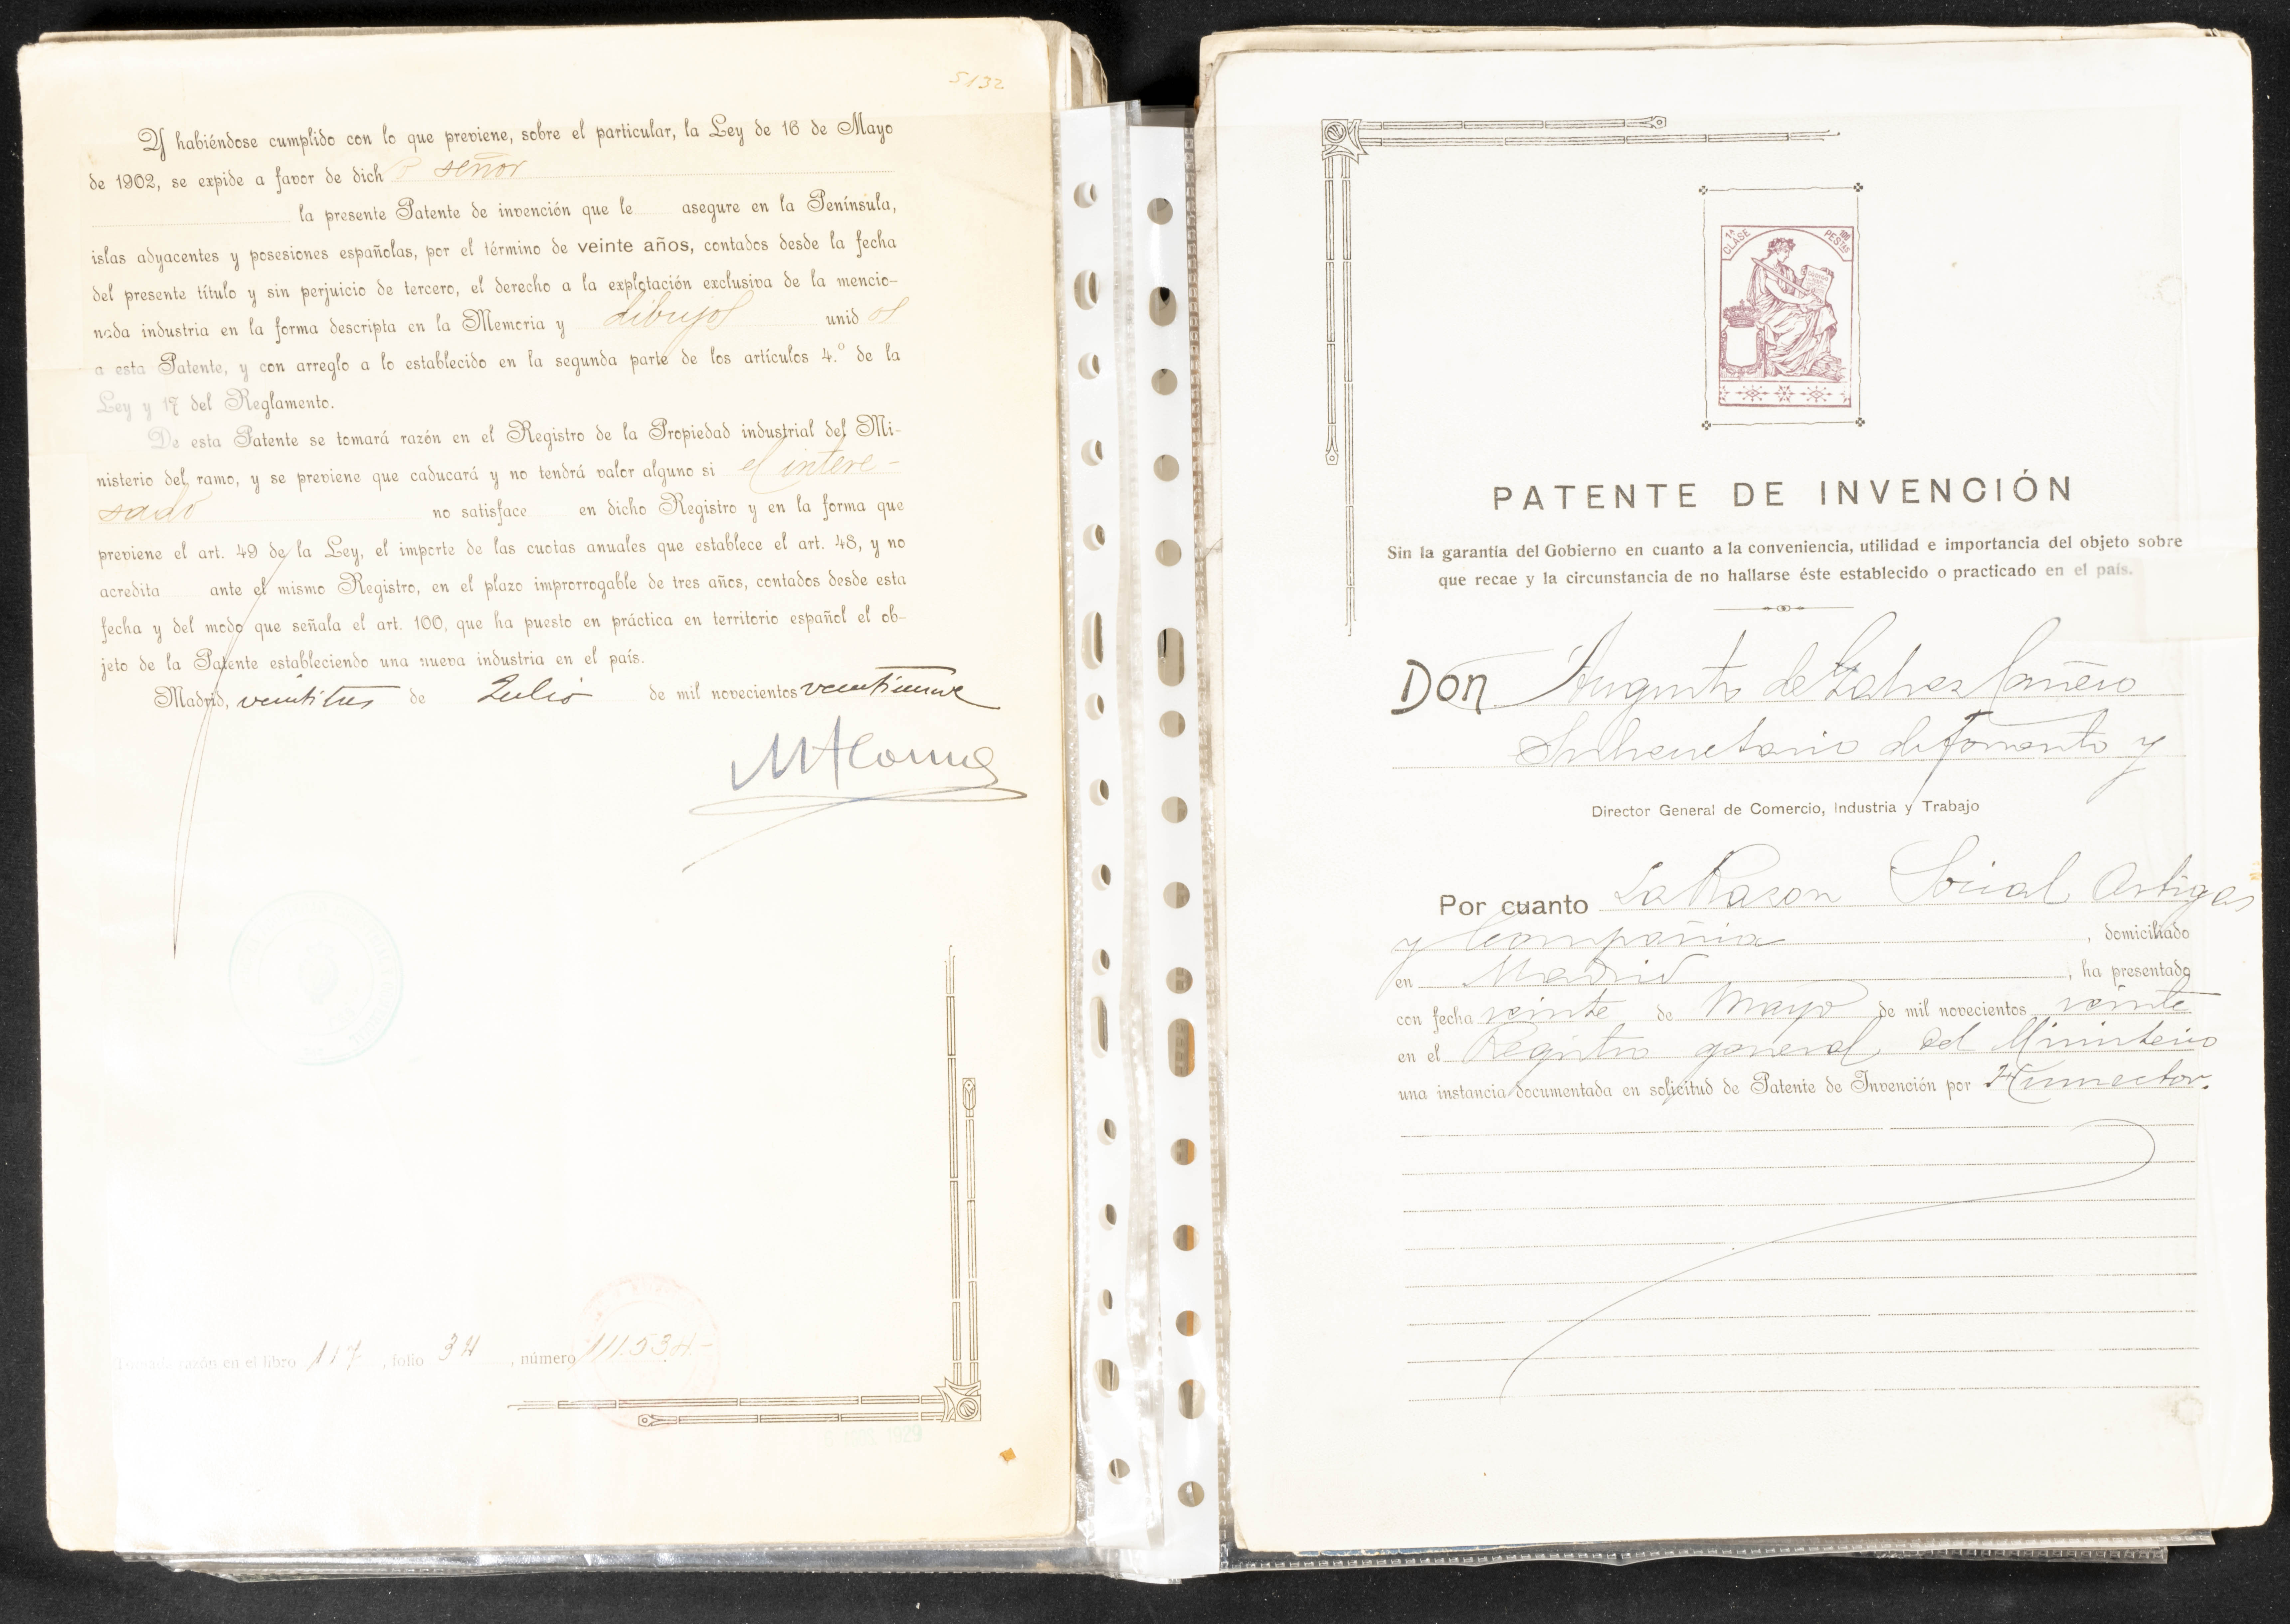 5132
Y habiéndose cumplido con lo que previene, sobre el particular, la Ley de 16 de Mayo
de 1902, se expide a favor de dicho señor
la presente Patente de invención que le asegure en la Península,
islas adyacentes y posesiones españolas, por el término de veinte años, contados desde la fecha
del presente título y sin perjuicio de tercero, el derecho a la explotación exclusiva de la mencio-
nada industria en la forma descripta en la Memoria y dibujos unidos
a esta Patente, y con arreglo a lo establecido en la segunda parte de los artículos 4.º de la
Ley y 17 del Reglamento.
De esta Patente se tomará razón en el Registro de la Propiedad industrial del Mi-
nisterio del ramo, y se previene que caducará y no tendrá valor alguno si el intere-
sado no satisface en dicho Registro y en la forma que
previene el art. 49 de la Ley, el importe de las cuotas anuales que establece el art. 48, y no
acredita ante el mismo Registro, en el plazo improrrogable de tres años, contados desde esta
fecha y del modo que señala el art. 100, que ha puesto en práctica en territorio español el ob-
jeto de la Patente estableciendo una nueva industria en el país.
Madrid, veintitres de Julio de mil novecientos veintinueve
Tomada razón en el libro 117, folio 34, número 111.534.-
1929
1ª CLASE
100 PESTAS
PATENTE DE INVENCIÓN
Sin la garantía del Gobierno en cuanto a la conveniencia, utilidad e importancia del objeto sobre
que recae y la circunstancia de no hallarse éste establecido o practicado en el país.
Don Augusto de Galvez Cañero
Subsecretario de Fomento y
Director General de Comercio, Industria y Trabajo
Por cuanto La Razon Social Artigas
y Compañia, domiciliado
en Madrid, ha presentado
con fecha veinte de Mayo de mil novecientos veinte
en el Registro general del Ministerio
una instancia documentada en solicitud de Patente de Invención por Humector.